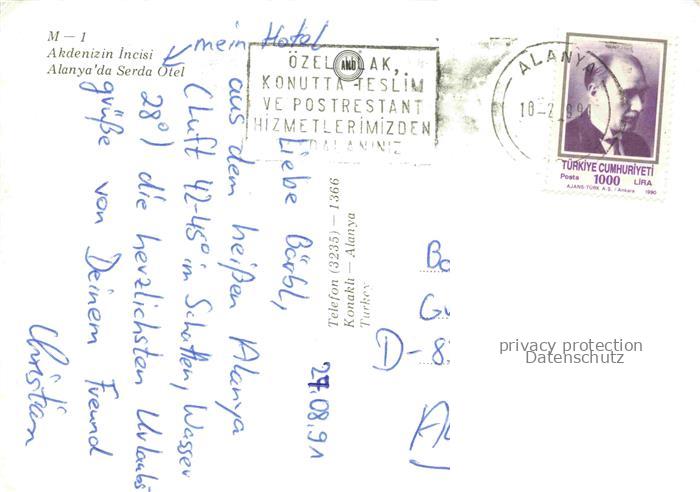 M — 1
Akdenizin İncisi
Alanya'da Serda Otel
mein Hotel
ÖZEL ULAK,
KONUTTA TESLİM
VE POSTRESTANT
HİZMETLERİMİZDEN
ALANYA
TÜRKİYE CUMHURİYETİ
Posta 1000 LİRA
AJANS-TÜRK A.Ş. / Ankara 1990
Telefon (3235) — 1366
Konaklı — Alanya
Turkey
27.08.91
Liebe Bärbl,
aus dem heißen Alanya
(Luft 42-45° im Schatten, Wasser
28°) die herzlichsten Urlaubs
grüße von Deinem Freund
Christian
D-8
privacy protection
Datenschutz